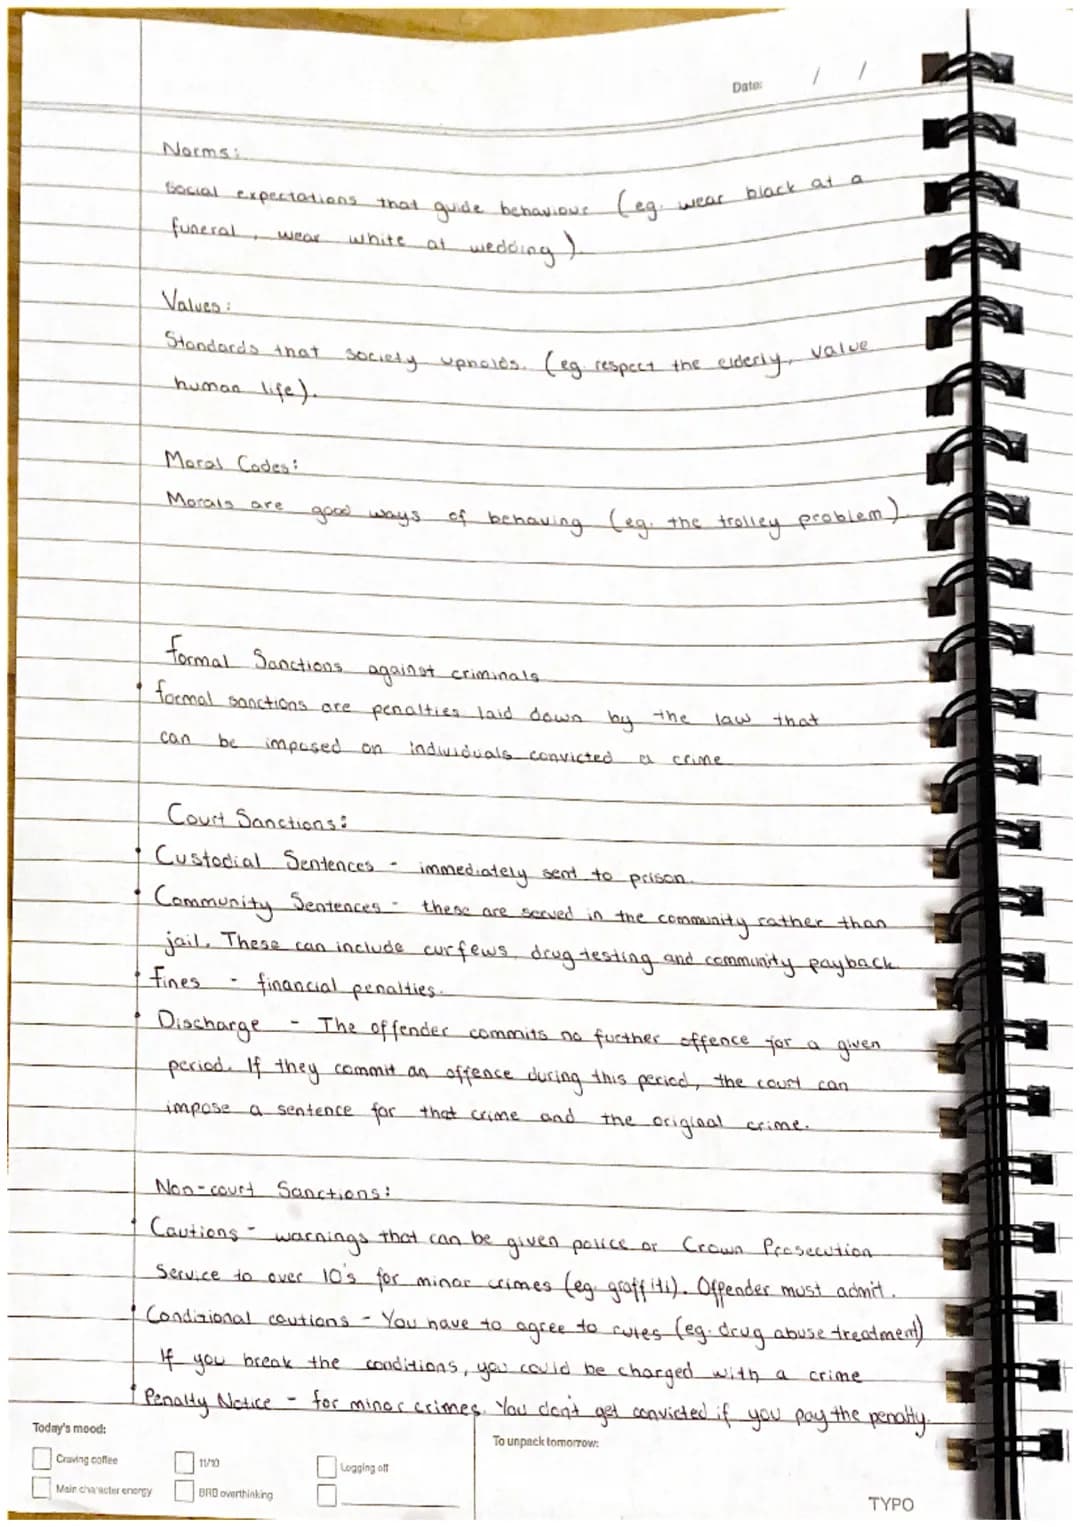 Date: / /
Norms:
Social expectations that guide behaviour (eg. wear black at a
funeral, wear white at wedding).
Values:
Standards that society upholds. (eg. respect the elderly, value
human life).
Moral Codes:
Morals are good ways of behaving (eg. the trolley problem)
Formal Sanctions against criminals
• formal sanctions are penalties laid down by the law that
can be imposed on individuals convicted a crime
Court Sanctions:
• Custodial Sentences - immediately sent to prison.
• Community Sentences - these are served in the community rather than
jail. These can include curfews, drug testing and community payback
• Fines - financial penalties.
• Discharge - The offender commits no further offence for a given
period. If they commit an offence during this period, the court can
impose a sentence for that crime and the original crime.
Non-court Sanctions:
• Cautions - warnings that can be given police or Crown Prosecution
Service to over 10's for minor crimes (eg. graffiti). Offender must admit.
• Condizional cautions - You have to agree to rules (eg. drug abuse treatment)
If you break the conditions, you could be charged with a crime
• Penalty Notice - for minor crimes. You don't get convicted if you pay the penalty.
Today's mood:
To unpack tomorrow:
Craving coffee
11/10
Logging off
Main character energy
BRB overthinking
TYPO